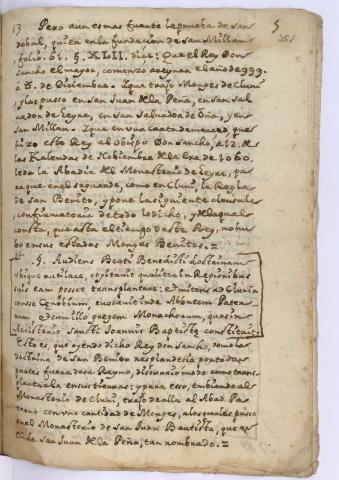 13 Pero aun es mas fuerte la prueba de San- 5
dobal, quien en la fundacion de San Millan 351
folio. 61. §. XLIII. dice: Que el Rey Don
Sancho el mayor, comenzo a reynar el año de 999.
a 6. de Diciembre. I que trajo Monges de Cluni
y los puso en San Juan de la Peña, en San Sal-
vador de Leyre, en San Salvador de Oña, y en
San Millan. I que en una carta de merced, que
hizo este Rey al obispo Don Sancho, a 12. de
las Kalendas de Nobiembre de la Era de 1060.
le da la Abadia del Monasterio de Leyre, pa-
ra que en el se guarde, como en Cluni, la Regla
de San Benito, y pone la siguiente clausula
confirmatoria de todo lo dicho, y de la qual
consta, que asta el tiempo de este Rey, no hu-
bo en sus estados Monges Benitos. =
14 §. Audiens Beati Benedicti doctrinam
ubique rutilare, cogitavit qualiter in Regionibus
suis eam posset transplantare: & mitens ad Clunia
cense Cenobium, evocavit inde Abbatem Pater-
num & cum illo gregem Monachorum, quos in
Acisterio Sancti Joannis Baptistæ constituit.
Esto es, que oyendo dicho Rey Don Sancho, como la
doctrina de San Benito resplandecia por todas
partes fuera de su Reyno, discurrio modo como trans-
plantarla en sus tierras: y para eso, embiando al
Monasterio de Cluni, trajo de alla al Abad Pa-
terno con una cantidad de Monges, a los quales puso
en el Monasterio de San Juan Bautista, que es
el de San Juan de la Peña, tan nombrado. =